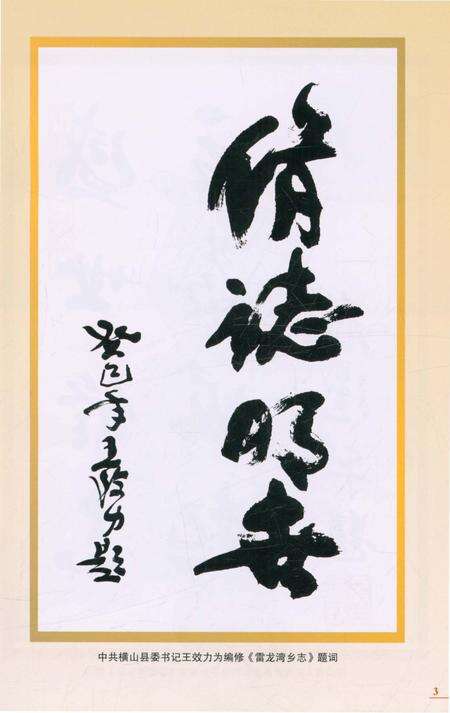 脩誌明
癸巳年王效力题
中共横山县委书记王效力为编修《雷龙湾乡志》题词
3